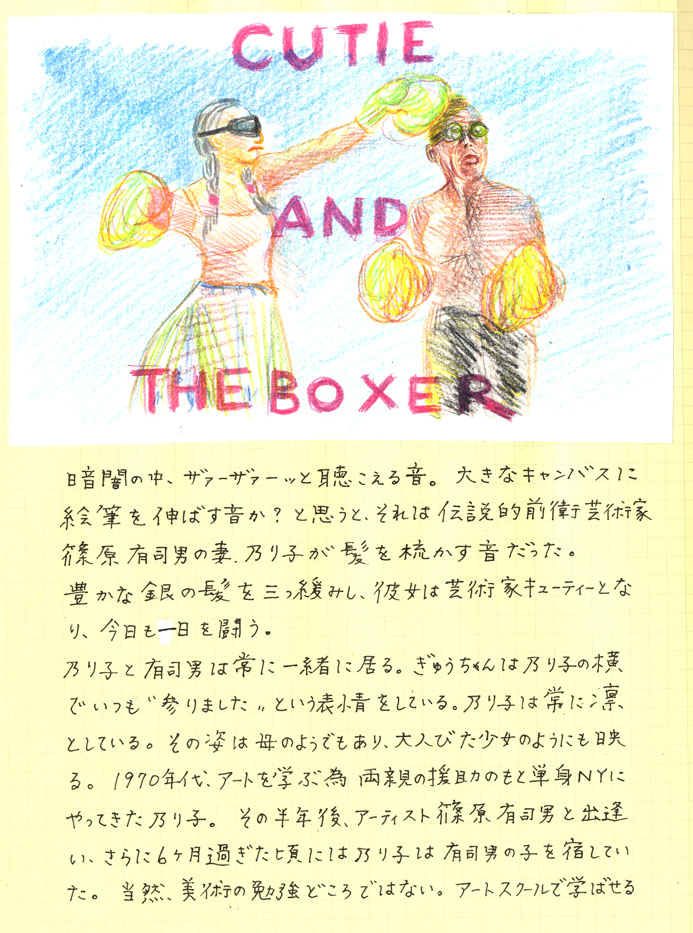 CUTIE
AND
THE BOXER
暗闇の中、ザァーザァーッと聴こえる音。大きなキャンバスに
絵筆を伸ばす音か?と思うと、それは伝説的前衛芸術家
篠原有司男の妻、乃り子が髪を梳かす音だった。
豊かな銀の髪を三つ緩みし、彼女は芸術家キューティーとな
り、今日も一日を闘う。
乃り子と有司男は常に一緒に居る。ぎゅうちゃんは乃り子の横
でいつも〝参りました〟という表情をしている。乃り子は常に凛
としている。その姿は母のようでもあり、大人びた少女のようにも映
る。1970年代、アートを学ぶ為両親の援助のもと単身NYに
やってきた乃り子。その半年後、アーティスト篠原有司男と出逢
い、さらに6ヶ月過ぎた頃には乃り子は有司男の子を宿してい
た。当然、美術の勉強どころではない。アートスクールで学ばせる